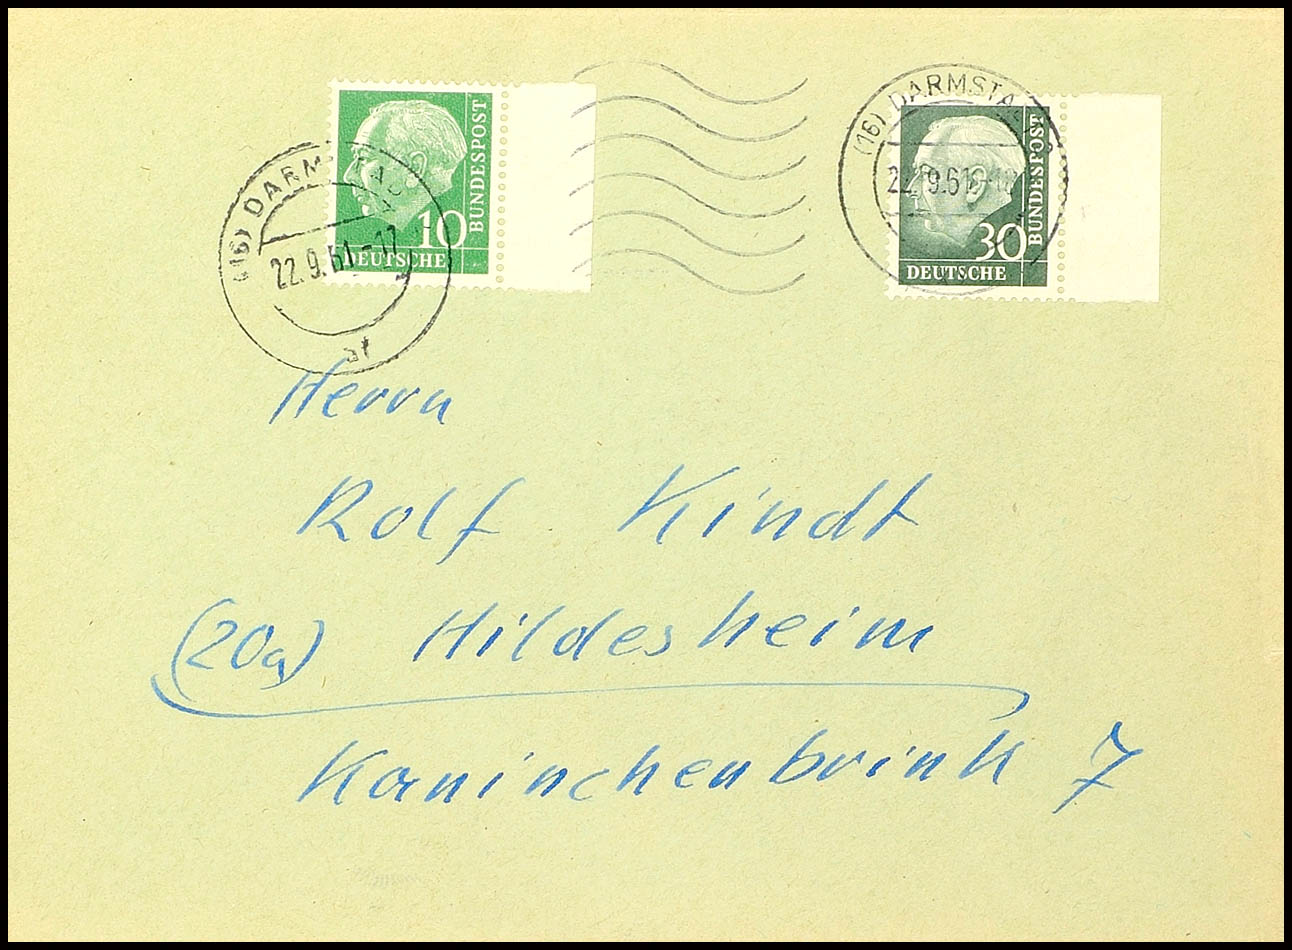 (16) DARMSTADT
22.9.61-17
at
10
DEUTSCHE
BUNDESPOST
(16) DARMSTADT
22.9.61
30
DEUTSCHE
BUNDESPOST
Herrn
Rolf Kindt
(20a) Hildesheim
Kaninchenbrink 7